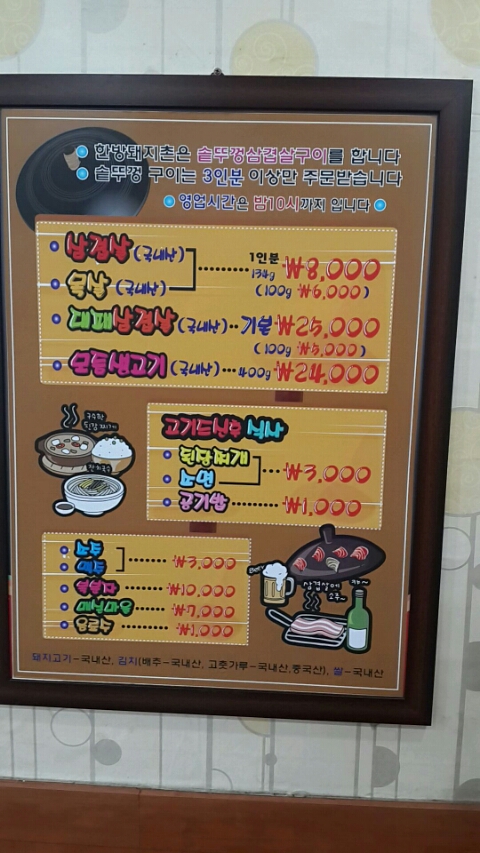 한방돼지촌은 솥뚜껑삼겹살구이를 합니다
솥뚜껑 구이는 3인분 이상만 주문받습니다
영업시간은 밤10시까지 입니다
삼겹살 (국내산) 1인분 134g ₩8,000
목살 (국내산) (100g ₩6,000)
대패삼겹살 (국내산) 기본 ₩25,000
(100g ₩5,000)
모듬생고기 (국내산) 400g ₩24,000
고기드신후 식사
된장찌개
소면 ₩3,000
공기밥 ₩1,000
소주
맥주 ₩3,000
복분자 ₩10,000
매취순 ₩7,000
음료수 ₩1,000
구수한
된장찌개
잔치국수
Beer
삼겹살에
소주~
캬~
돼지고기-국내산, 김치(배추-국내산, 고춧가루-국내산,중국산), 쌀-국내산